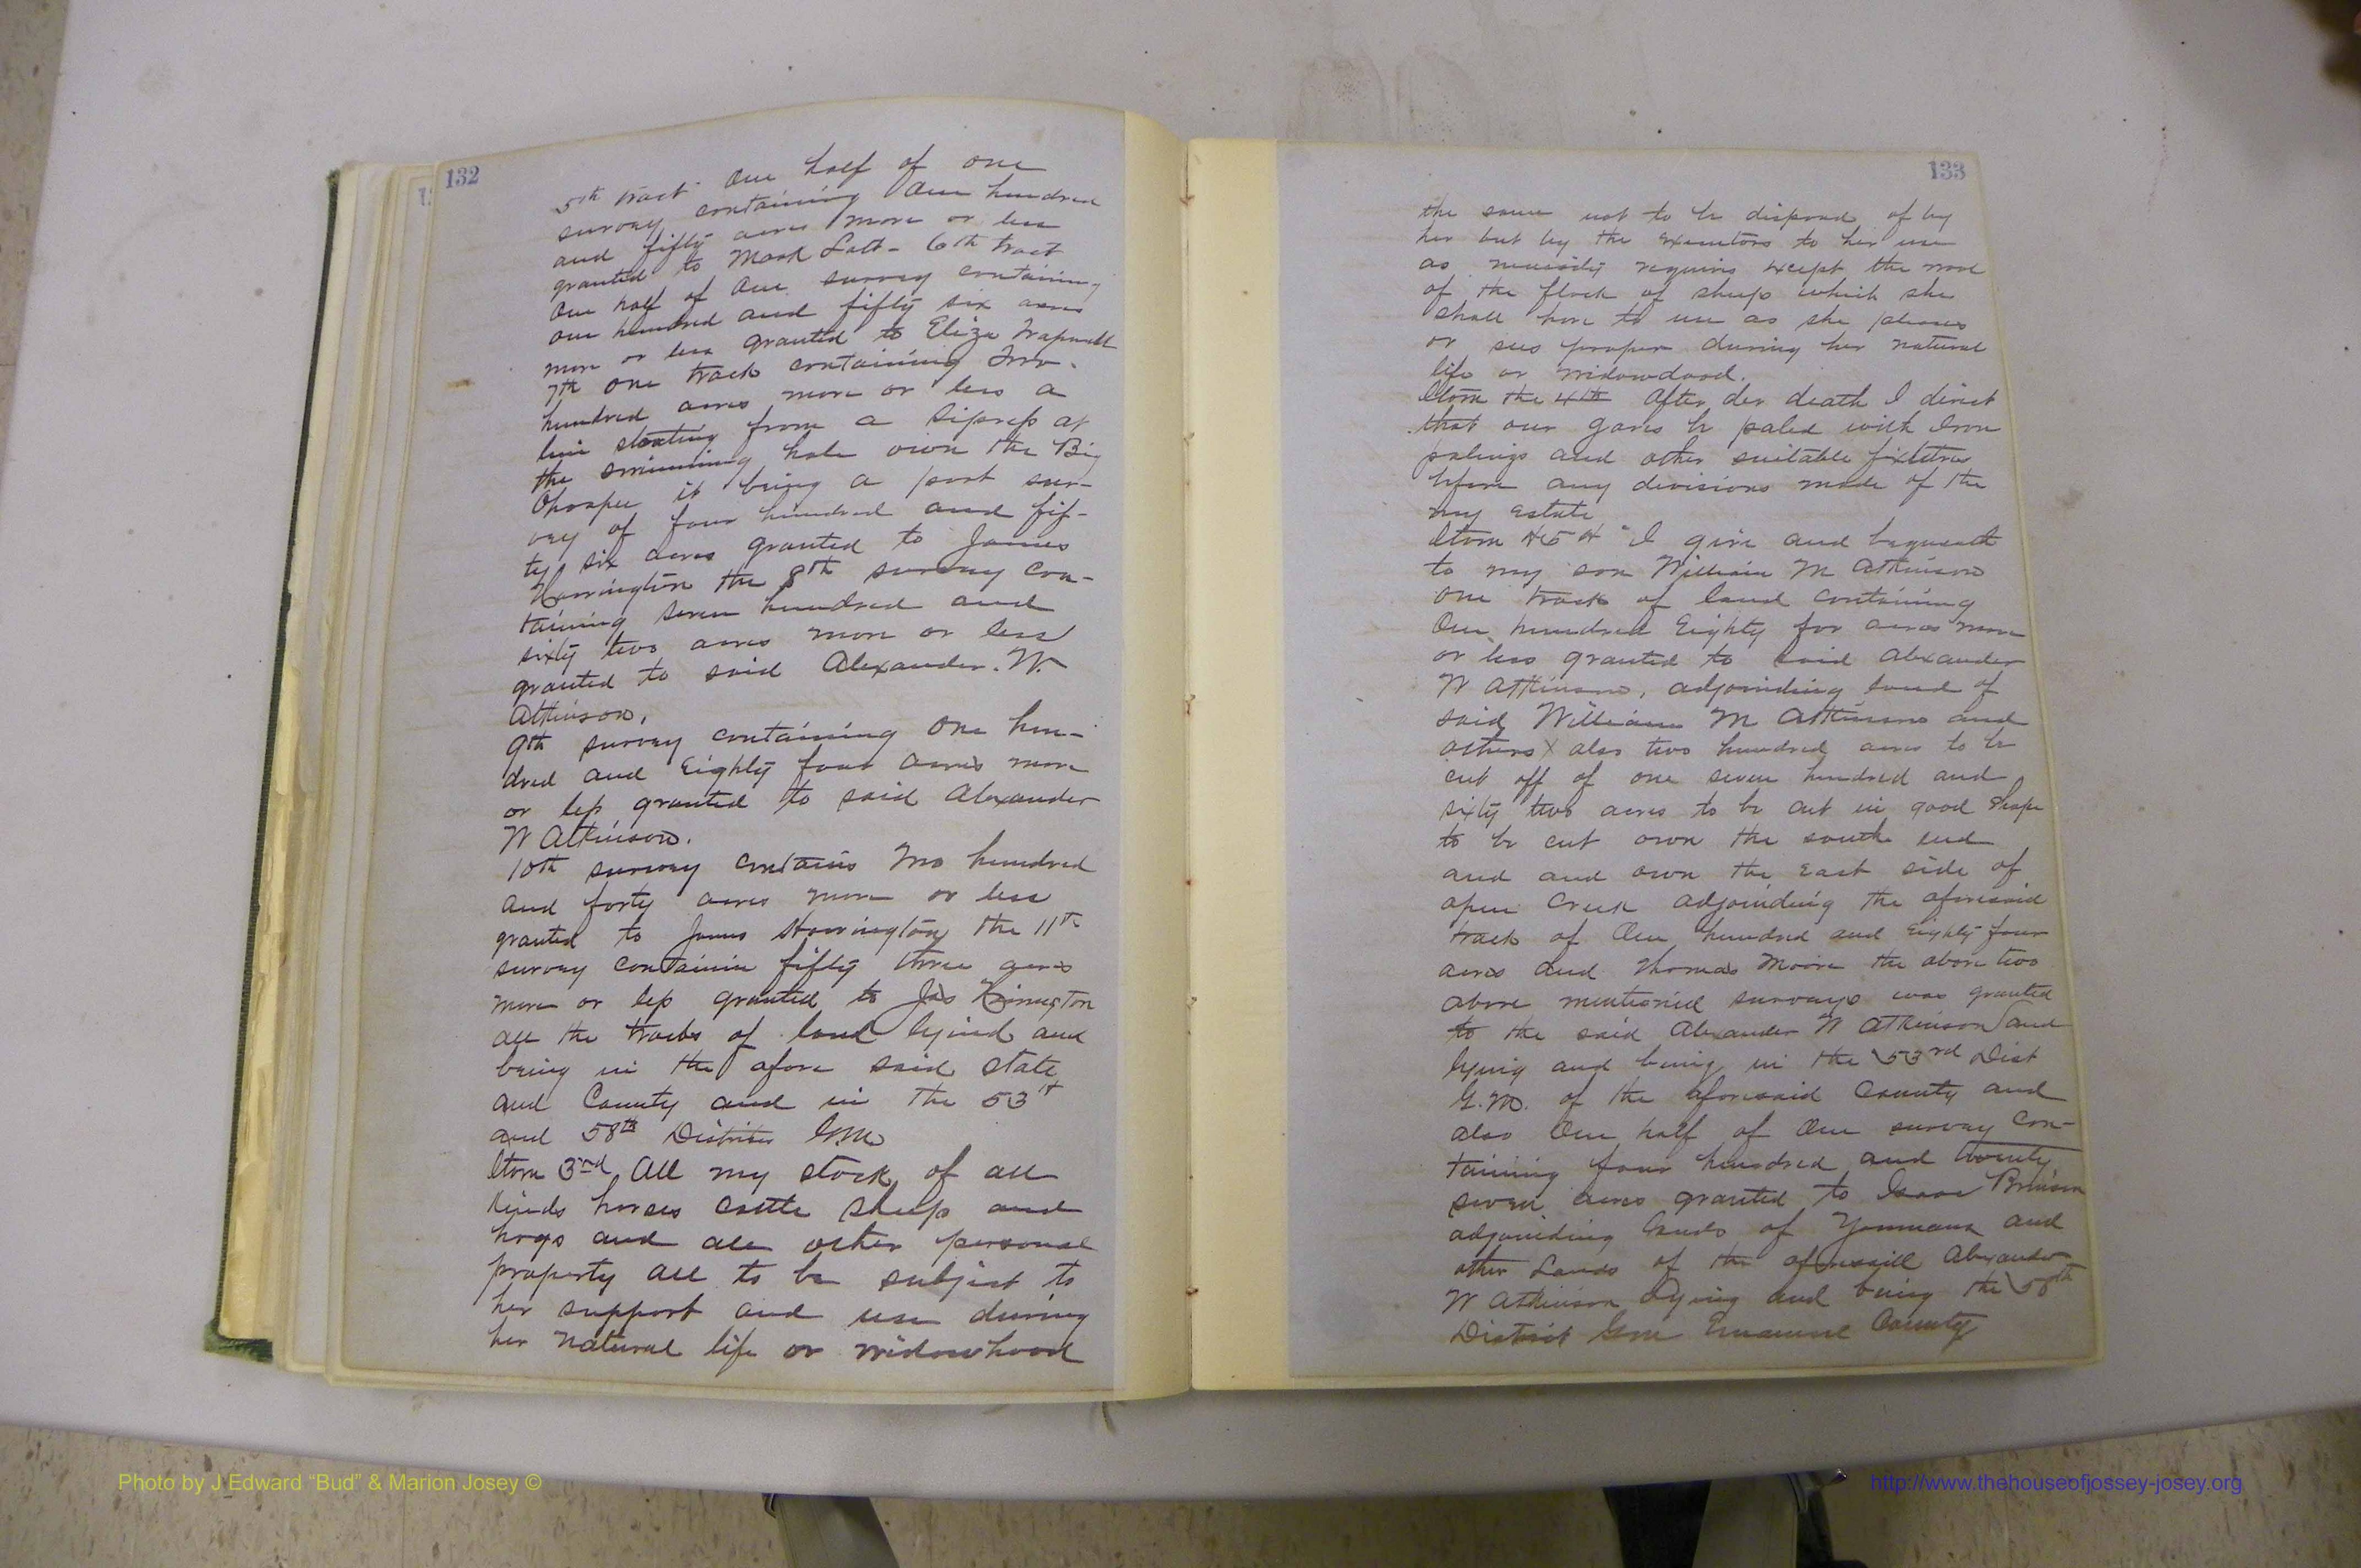 132
5th tract One half of one
survey containing One hundred
and fifty acres more or less
granted to Mark Lott - 6th tract
One half of One survey containing
one hundred and fifty six acres
more or less granted to Eliza Trapnell
7th one track containing Two
hundred acres more or less a
line starting from a Sipress at
the swimming hole oion the Big
Ohoopee it being a part sur-
vey of four hundred and fif-
ty six acres granted to James
Harrington the 8th survey con-
taining seven hundred and
sixty two acres more or less
granted to said Alexander. W.
Atkinson.
9th survey containing One hun-
dred and Eighty four acres more
or less granted to said Alexander
W Atkinson.
10th survey contains Two hundred
and forty acres more or less
granted to James Harrington the 11th
survey containin fifty three acres
more or less granted to Jas
all the tracks of land lyind and
being in the afore said state
and County and in the 53
and 58th Districts G.M.
Item 3rd All my stock of all
kinds horses cattle sheep and
hogs and all other personal
property all to be subject to
her support and use during
her natural life or widowhood
133
the same not to be disposed of by
her but by the executors to her use
as necessity requires except the wool
of the flock of sheep which she
shall have to use as she pleases
or sees proper during her natural
life or widowdood.
Item the 4th After der death I direct
that our graves be paled with Iron
palings and other suitable fixtures
before any divisions made of the
my estate
Item #5# I give and bequeath
to my son William M Atkinson
one track of land containing
One hundred Eighty for acres more
or less granted to said Alexander
W Atkinson, adjoinding land of
said William M Atkinson and
others X also two hundred acres to be
cut off of one seven hundred and
sixty two acres to be cut in good shape
to be cut own the south end
and and own the East side of
open Creek adjoinding the aforesaid
track of One hundred and Eighty four
acres and Thomas Moore the above two
above mentioned surveys was granted
to the said Alexander W Atkinson and
lying and being in the 53rd Dist
G.M. of the aforesaid County and
also One half of One survey con-
taining four hundred and twenty
seven acres granted to Isaac Brinson
adjoinding lands of Youmans and
other Lands of the aforesaid Alexander
W Atkinson lying and being the 58th
District G.M. Emanuel County
Photo by J Edward “Bud” & Marion Josey ©
http://www.thehouseofjossey-josey.org